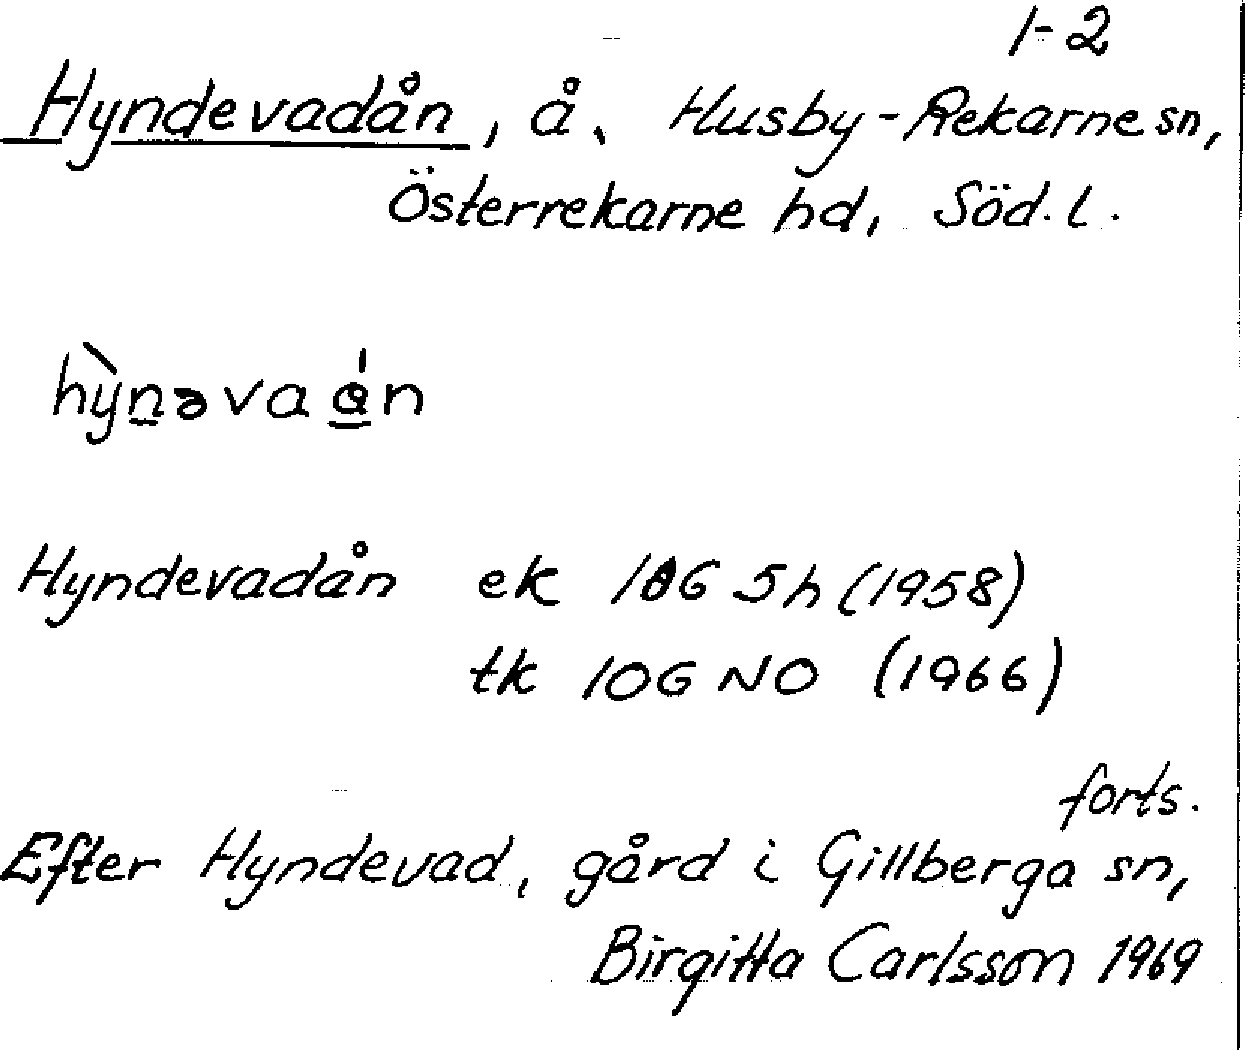 1-2
Hyndevadån, å, Husby-Rekarne sn,
Österrekarne hd, Söd. l.
hy̍̀nəvaån
Hyndevadån ek 10G 5h (1958)
tk 10G NO (1966)
forts.
Efter Hyndevad, gård i Gillberga sn,
Birgitta Carlsson 1969